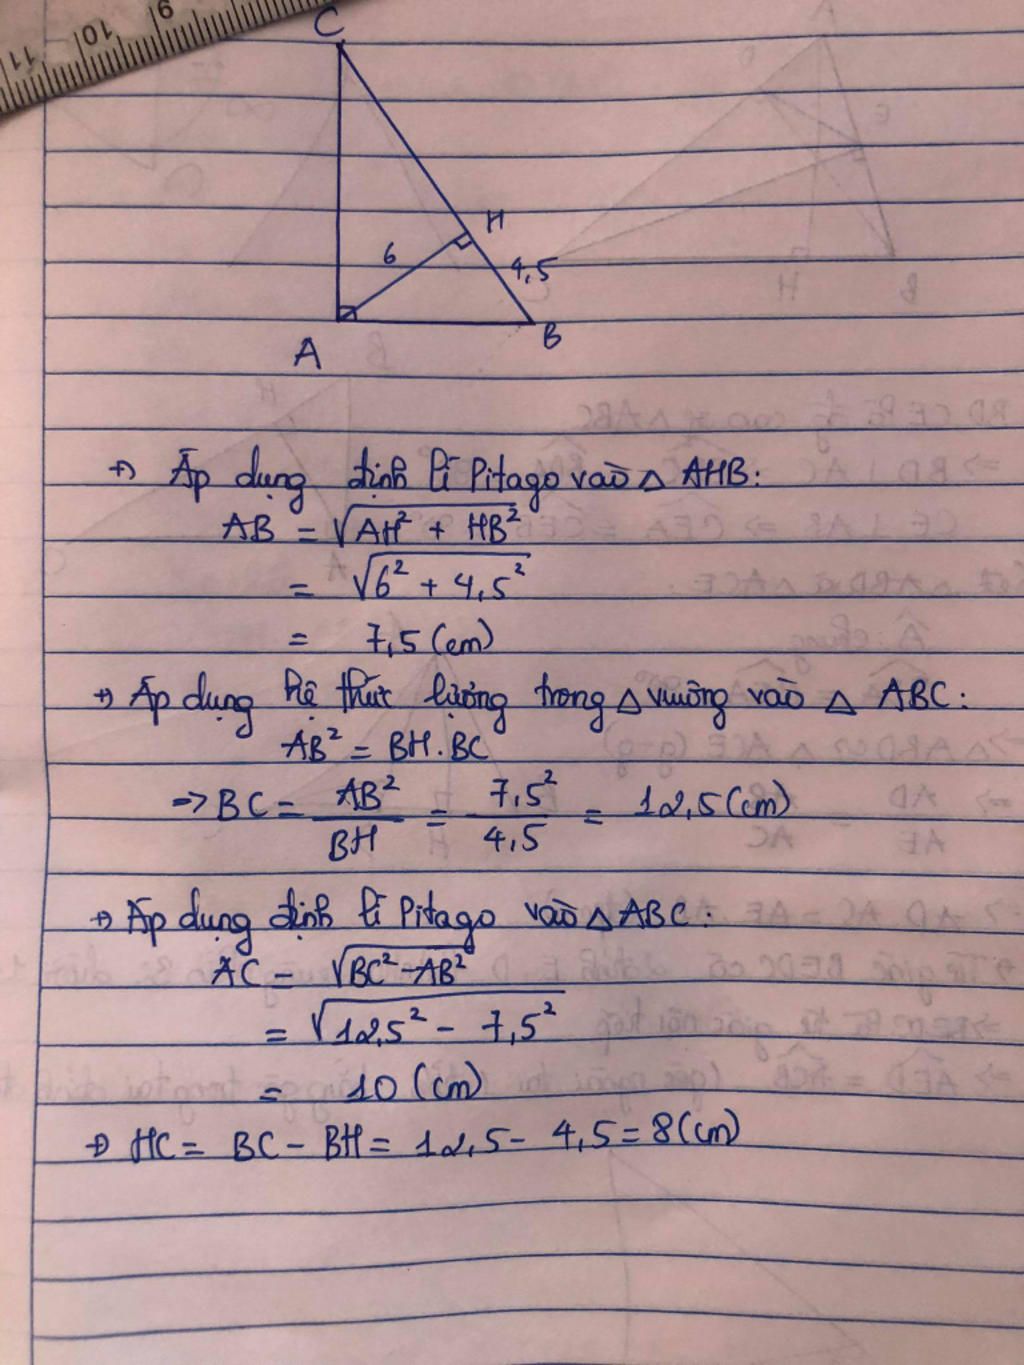 9
10
11
C
H
6
4,5
A
B
+) Áp dụng định lí Pitago vào △ AHB:
AB = √AH² + HB²
= √6² + 4,5²
= 7,5 (cm)
+) Áp dụng hệ thức lượng trong △ vuông vào △ ABC:
AB² = BH . BC
=> BC = AB²/BH = 7,5²/4,5 = 12,5 (cm)
+) Áp dụng định lí Pitago vào △ ABC:
AC = √BC² - AB²
= √12,5² - 7,5²
= 10 (cm)
+) HC = BC - BH = 12,5 - 4,5 = 8 (cm)